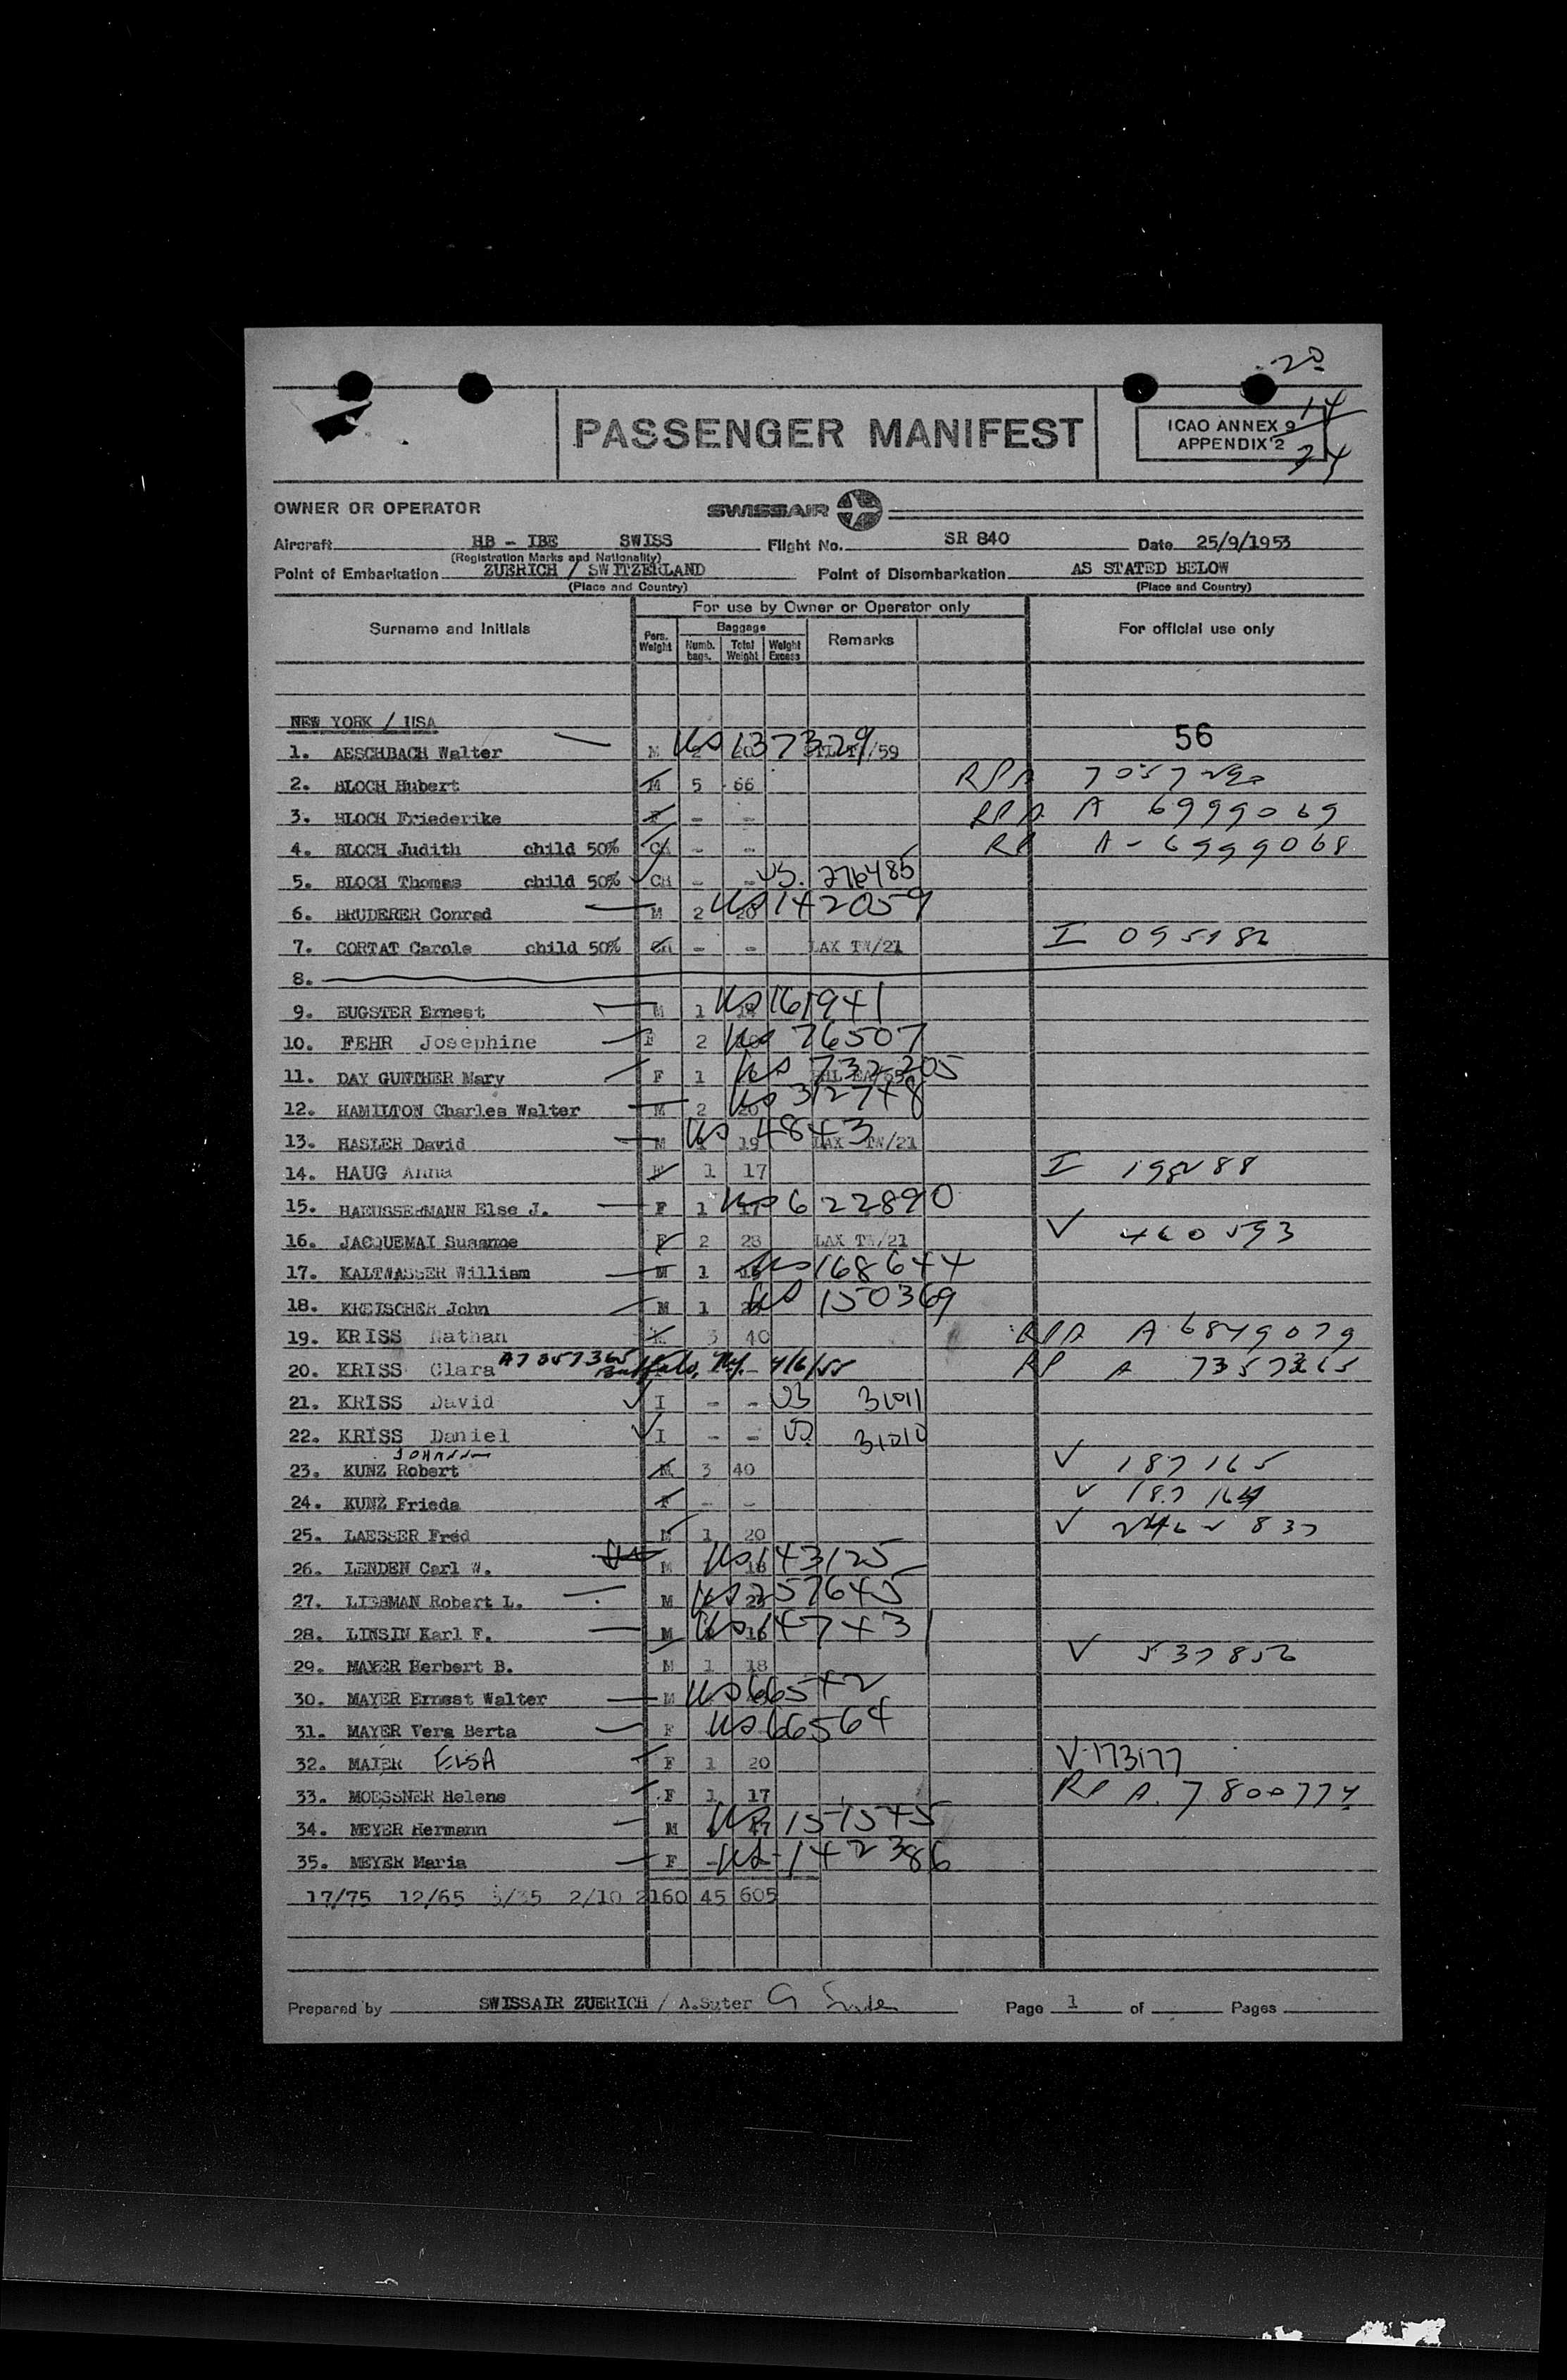 20
PASSENGER MANIFEST
ICAO ANNEX 9
APPENDIX 2
14
24
OWNER OR OPERATOR SWISSAIR
Aircraft HB - IBE SWISS Flight No. SR 840 Date 25/9/1953
(Registration Marks and Nationality)
Point of Embarkation ZUERICH / SWITZERLAND Point of Disembarkation AS STATED BELOW
(Place and Country) (Place and Country)
For use by Owner or Operator only
Surname and Initials Pers. Weight Baggage Numb. bags. Total Weight Weight Excess Remarks For official use only
NEW YORK / USA
56
1. AESCHBACH Walter M US 137329 /59
2. BLOCH Hubert M 5 66 RPA 7057290
3. BLOCH Friederike F - - RPA A 6999069
4. BLOCH Judith child 50% CH - - RP A-6999068
5. BLOCH Thomas child 50% CH - - US. 276485
6. BRUDERER Conrad M 2 20 US 142059
7. CORTAT Carole child 50% CH - - LAX TW/21 I 095182
8.
9. EUGSTER Ernest M 1 US 161941
10. FEHR Josephine F 2 US 76507
11. DAY GUNTHER Mary F 1 US 732205
12. HAMILTON Charles Walter M 2 20 US 312748
13. HASLER David M 19 US 4843 LAX TW/21
14. HAUG Anna F 1 17 I 198288
15. HAEUSSERMANN Else J. F 1 17 US 622890
16. JACQUEMAI Susanne F 2 28 LAX TW/21 V 460593
17. KALTWASSER William M 1 US 168644
18. KREISCHER John M 1 US 150369
19. KRISS Nathan M 3 40 RPA A 6849079
20. KRISS Clara A7357365 Buffalo, Ny. 4/6/55 RP A 7357365
21. KRISS David I - - US 31011
22. KRISS Daniel I - - US 31010
23. KUNZ Robert M 3 40 V 187165
24. KUNZ Frieda F - - V 187164
25. LAESSER Fred M 1 20 V 2462837
26. LENDEN Carl W. M 18 US 143125
27. LIEBMAN Robert L. M US 257645
28. LINSIN Karl F. M 16 US 147431
29. MAYER Herbert B. M 1 18 V 537856
30. MAYER Ernest Walter M US 66542
31. MAYER Vera Berta F US 66564
32. MAIER ELSA F 1 20 V-173177
33. MOESSNER Helene F 1 17 RP A. 7800774
34. MEYER Hermann M US 151545
35. MEYER Maria F - US-142386
17/75 12/65 5/35 2/10 2160 45 605
Prepared by SWISSAIR ZUERICH / A.Suter Page 1 of Pages